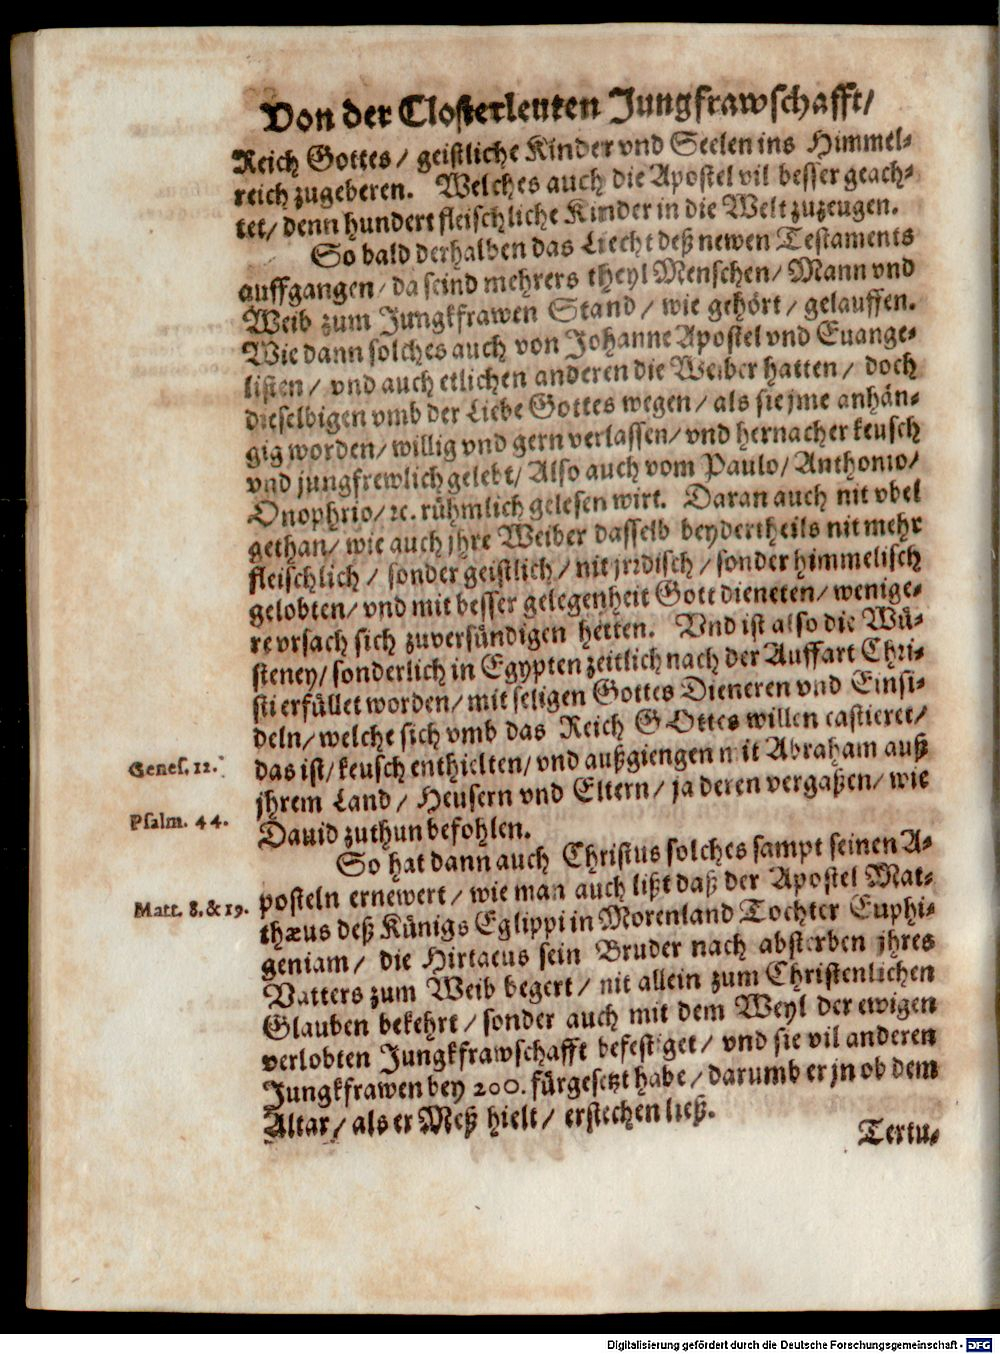 Von der Closterleuten Jungfrawschafft/
Reich Gottes / geistliche Kinder vnd Seelen ins Himmel-
reich zugeberen. Welches auch die Apostel vil besser geach-
tet/ denn hundert fleischliche Kinder in die Welt zuzeugen.
So bald derhalben das Liecht deß newen Testaments
auffgangen/ da seind mehrers theyl Menschen/ Mann vnd
Weib zum Jungkfrawen Stand / wie gehört / gelauffen.
Wie dann solches auch von Johanne Apostel vnd Euange-
listen / vnd auch etlichen anderen die Weiber hatten / doch
dieselbigen vmb der Liebe Gottes wegen / als sie jme anhän-
gig worden/ willig vnd gern verlassen/ vnd hernacher keusch
vnd jungfrewlich gelebt/ Also auch vom Paulo/ Anthonio/
Onophrio/ ꝛc. rühmlich gelesen wirt. Daran auch nit vbel
gethan/ wie auch jhre Weiber dasselb beydertheils nit mehr
fleischlich / sonder geistlich / nit jrrdisch / sonder himmelisch
gelobten/ vnd mit besser gelegenheit Gott dieneten/ wenige-
re vrsach sich zuversündigen hetten. Vnd ist also die Wü-
steney/ sonderlich in Egypten zeitlich nach der Auffart Chri-
sti erfüllet worden/ mit seligen Gottes Dieneren vnd Einsi-
deln/ welche sich vmb das Reich GOttes willen castieret/
das ist/ keusch enthielten/ vnd außgiengen mit Abraham auß
Genes. 12.
jhrem Land / Heusern vnd Eltern/ ja deren vergaßen/ wie
Psalm. 44.
Dauid zuthun befohlen.
So hat dann auch Christus solches sampt seinen A-
Matt. 8. & 19.
posteln ernewert / wie man auch lißt daß der Apostel Mat-
thæus deß Künigs Eglippi in Morenland Tochter Euphi-
geniam / die Hirtacus sein Bruder nach absterben jhres
Vatters zum Weib begert / nit allein zum Christenlichen
Glauben bekehrt / sonder auch mit dem Weyl der ewigen
verlobten Jungkfrawschafft befestiget / vnd sie vil anderen
Jungkfrawen bey 200. fürgesetzt habe / darumb er jn ob dem
Altar / als er Meß hielt / erstechen ließ.
Tertu-
Digitalisierung gefördert durch die Deutsche Forschungsgemeinschaft - DFG